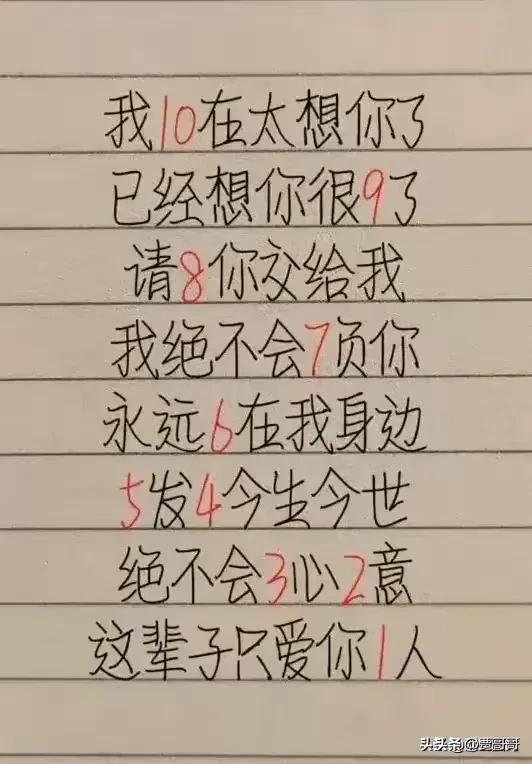 我10在太想你了
已经想你很9了
请8你交给我
我绝不会7负你
永远6在我身边
5发4今生今世
绝不会3心2意
这辈子只爱你1人
头条@贾哥哥